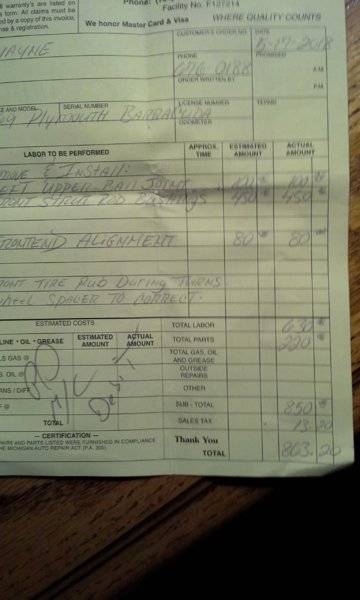 warranty's are listed on
s form. All claims must be
d by a copy of this invoice,
nse & registration.
Phone: (
Facility No. F127214
We honor Master Card & Visa
WHERE QUALITY COUNTS
WAYNE
CUSTOMER'S ORDER NO.
DATE
5-17-2018
PHONE
PROMISED
676 0188
A.M.
ORDER WRITTEN BY
P.M.
E AND MODEL
SERIAL NUMBER
LICENSE NUMBER
TERMS
69 PLYMOUTH BARRACUDA
ODOMETER
LABOR TO BE PERFORMED
APPROX. TIME
ESTIMATED AMOUNT
ACTUAL AMOUNT
MOVE & INSTALL:
LEFT UPPER BALL JOINT 100 100
FRONT STRUT ROD BUSHINGS 450 450
FRONTEND ALIGNMENT 80 80
FRONT TIRE RUB DURING TURNS
WHEEL SPACER TO CORRECT.
ESTIMATED COSTS
TOTAL LABOR 630
LINE • OIL • GREASE
ESTIMATED AMOUNT
ACTUAL AMOUNT
TOTAL PARTS 220
LS GAS @
TOTAL GAS, OIL AND GREASE
S. OIL @
OUTSIDE REPAIRS
ANS / DIFF
OTHER
F @
SUB - TOTAL 850
TOTAL
SALES TAX 13.20
— CERTIFICATION —
Thank You
TOTAL 863.20
PAIRS AND PARTS LISTED WERE FURNISHED IN COMPLIANCE
THE MICHIGAN AUTO REPAIR ACT (P.A. 300).